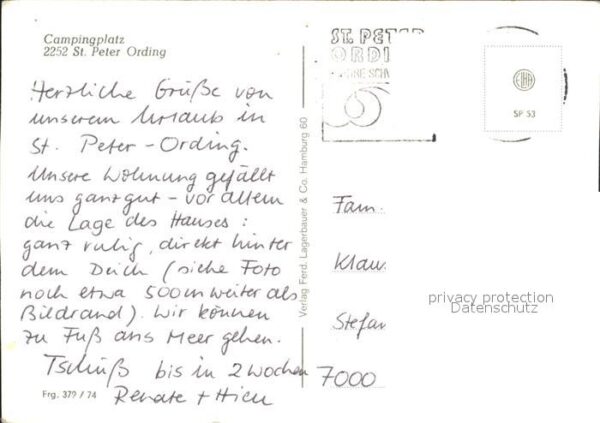 Campingplatz
2252 St. Peter Ording
Herzliche Grüße von
unserem Urlaub in
St. Peter-Ording.
Unsere Wohnung gefällt
uns ganz gut - vor allem
die Lage des Hauses:
ganz ruhig, direkt hinter
dem Deich (siehe Foto
noch etwa 500m weiter als
Bildrand). Wir können
zu Fuß ans Meer gehen.
Tschüß bis in 2 Wochen
Renate +
Frg. 379 / 74
Verlag Ferd. Lagerbauer & Co. Hamburg 60
ST. PETER
ORDI
SP 53
Fam.
Klaus
Stefan
7000
privacy protection
Datenschutz